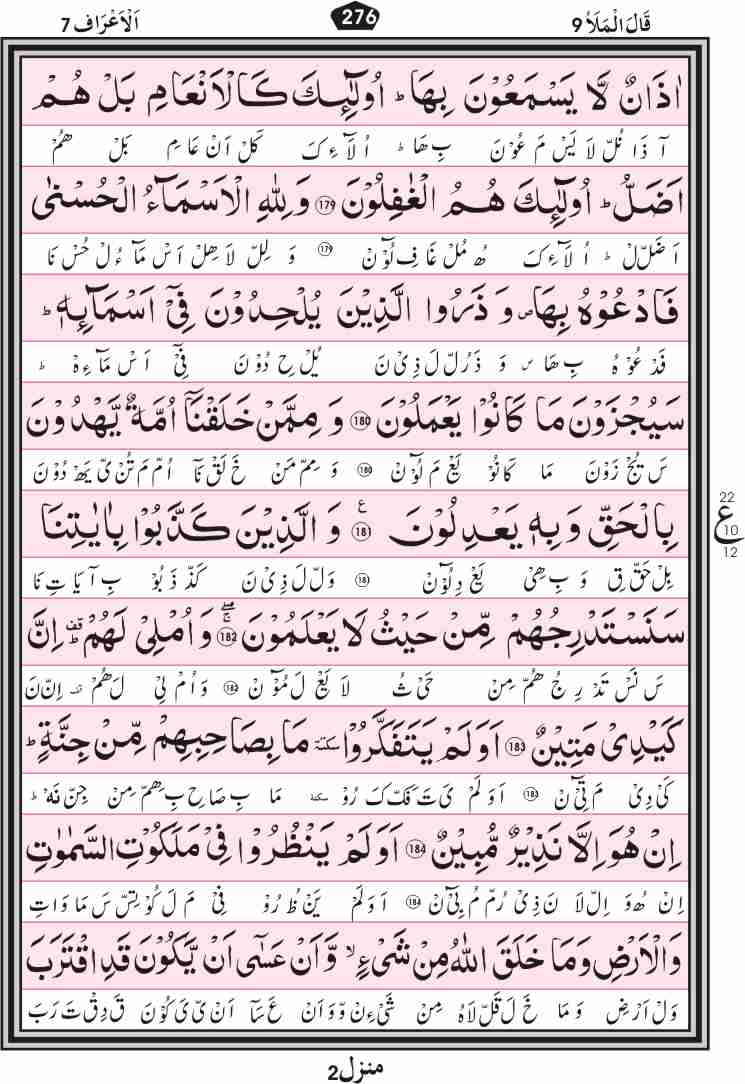 قَالَ الْمَلَاُ 9 276 اَلْاَعْرَاف 7
اٰذَانٌ لَّا يَسْمَعُوْنَ بِهَا ؕ اُولٰٓئِكَ كَالْاَنْعَامِ بَلْ هُمْ
آ ذَا نُلّ لَا يَسْ مَ عُوْنَ بِ هَا ؕ اُ لَآ ءِ كَ كَلْ اَنْ عَا مِ بَلْ هُمْ
اَضَلُّ ؕ اُولٰٓئِكَ هُمُ الْغٰفِلُوْنَ 179 وَ لِلّٰهِ الْاَسْمَآءُ الْحُسْنٰى
اَ ضَلّ لْ ؕ اُ لَآ ءِ كَ هُ مُلْ غَا فِ لُوْٓنْ 179 وَ لِلّ لَا هِلْ اَسْ مَآ ءُ لْ حُسْ نَا
فَادْعُوْهُ بِهَا ۪ وَ ذَرُوا الَّذِيْنَ يُلْحِدُوْنَ فِيْۤ اَسْمَآئِهٖ ؕ
فَدْ عُوْ هُ بِ هَا ۪ وَ ذَ رُلّ لَ ذِيْ نَ يُلْ حِ دُوْ نَ فِيْٓ اَسْ مَآ ءِهْ ؕ
سَيُجْزَوْنَ مَا كَانُوْا يَعْمَلُوْنَ 180 وَ مِمَّنْ خَلَقْنَاۤ اُمَّةٌ يَّهْدُوْنَ
سَ يُجْ زَوْنَ مَا كَانُوْ يَعْ مَ لُوْٓنْ 180 وَ مِمّ مَنْ خَ لَقْ نَآ اُمّ مَ تُنْ يّ يَهْ دُوْنَ
بِالْحَقِّ وَ بِهٖ يَعْدِلُوْنَ 181 ع وَ الَّذِيْنَ كَذَّبُوْا بِاٰيٰتِنَا
بِلْ حَقّ قِ وَ بِ هِيْ يَعْ دِلُوْٓنْ 181 وَلّ لَ ذِيْ نَ كَذّ ذَ بُوْ بِ آ يَا تِ نَا
سَنَسْتَدْرِجُهُمْ مِّنْ حَيْثُ لَا يَعْلَمُوْنَ 182 وَ اُمْلِيْ لَهُمْ ؕ اِنَّ
سَ نَسْ تَدْ رِ جُ هُمّ مِنْ حَيْ ثُ لَا يَعْ لَ مُوْٓنْ 182 وَ اُمْ لِيْ لَ هُمْ اِنّ نَ
كَيْدِيْ مَتِيْنٌ 183 اَوَ لَمْ يَتَفَكَّرُوْا سكتة مَا بِصَاحِبِهِمْ مِّنْ جِنَّةٍ ؕ
كَيْ دِيْ مَ تِيْٓنْ 183 اَ وَ لَمْ يَ تَ فَكّ كَ رُوْ سكتة مَا بِ صَا حِ بِ هِمّ مِنْ جِنّ نَهْ ؕ
اِنْ هُوَ اِلَّا نَذِيْرٌ مُّبِيْنٌ 184 اَوَ لَمْ يَنْظُرُوْا فِيْ مَلَكُوْتِ السَّمٰوٰتِ
اِنْ هُوَ اِلّ لَا نَ ذِيْ رُمّ مُ بِيْٓنْ 184 اَ وَ لَمْ يَنْ ظُ رُوْ فِيْ مَ لَ كُوْ تِسّ سَ مَا وَاتِ
وَ الْاَرْضِ وَ مَا خَلَقَ اللّٰهُ مِنْ شَيْءٍ ۙ وَّ اَنْ عَسٰۤى اَنْ يَّكُوْنَ قَدِ اقْتَرَبَ
وَلْ اَرْضِ وَ مَا خَ لَ قَلّ لَاهُ مِنْ شَيْءٍنْ وّ وَ اَنْ عَ سَآ اَنْ يّ يَ كُوْنَ قَ دِقْ تَ رَبَ
22
ع
10
12
منزل 2